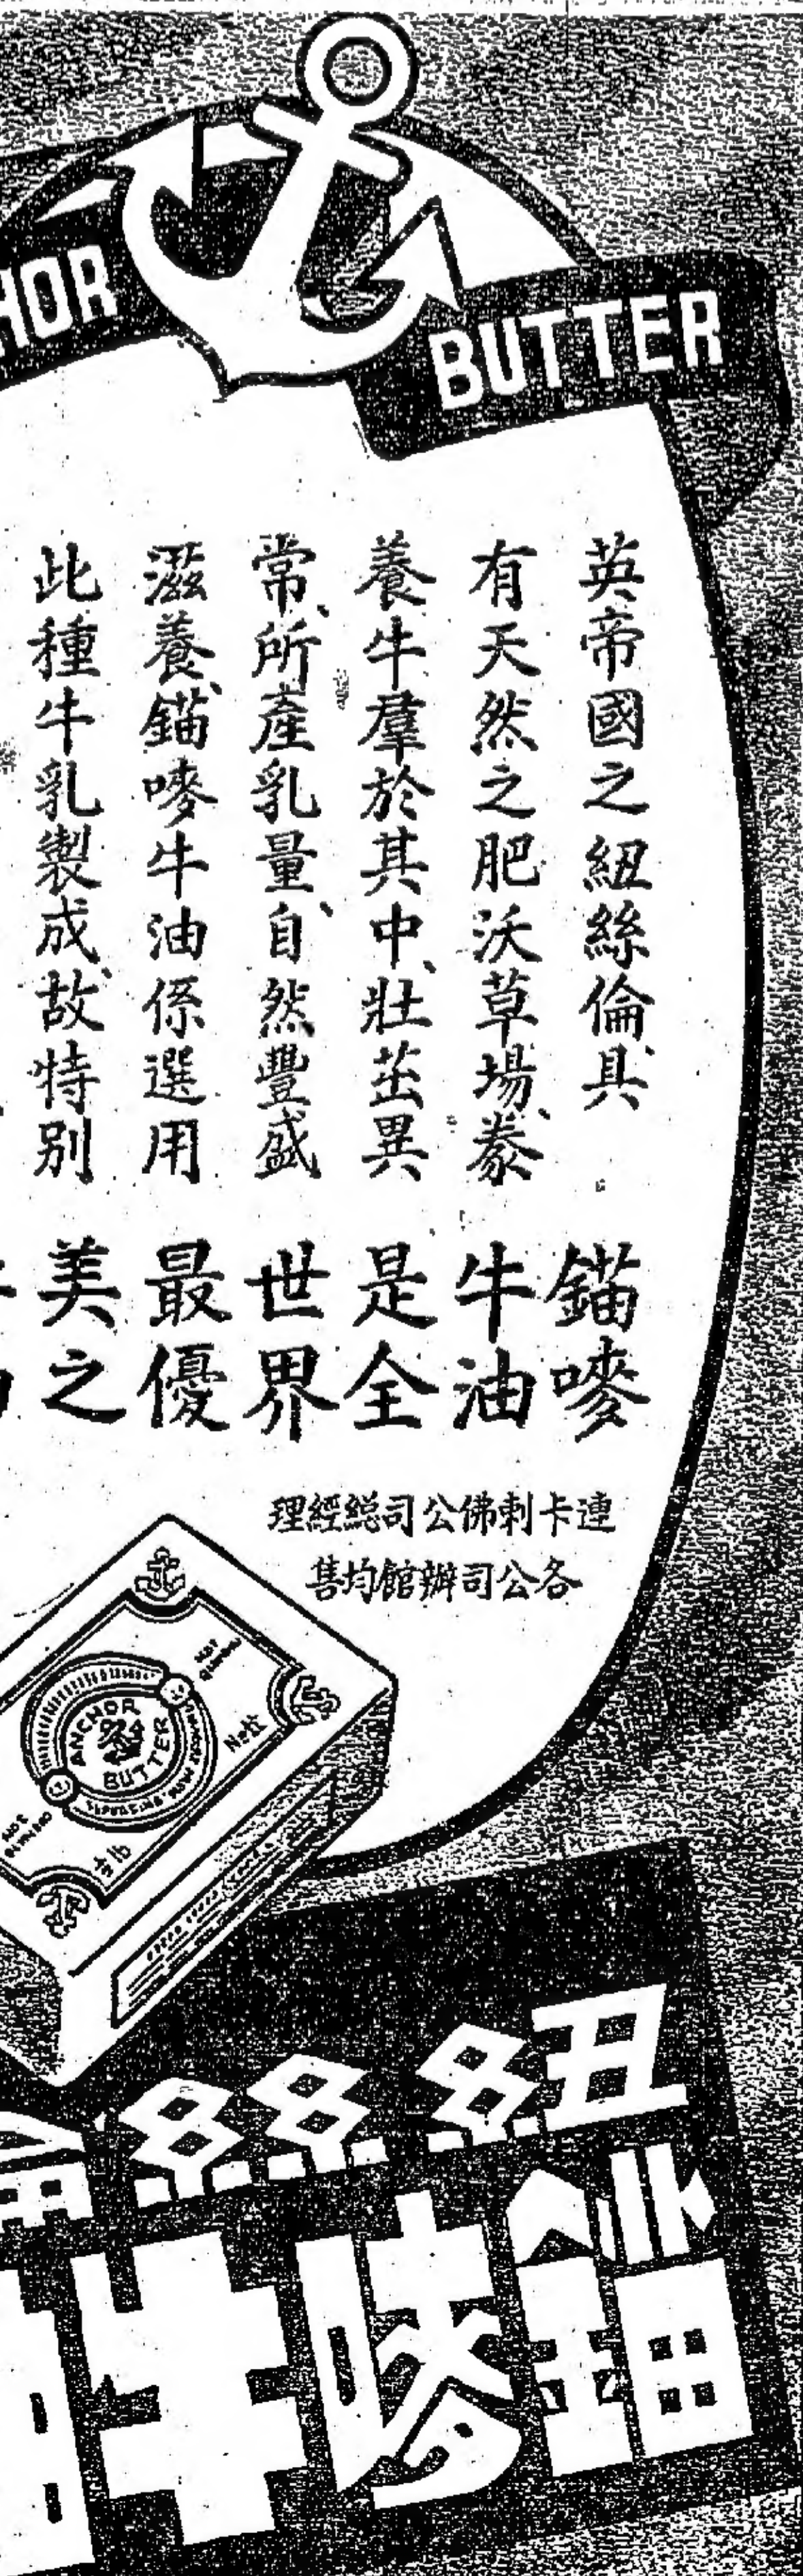 HOR
BUTTER
英帝國之紐絲倫具、
有天然之肥沃草場、豢
養牛羣於其中、壯茁異
常、所產乳量、自然豐盛
滋養、錨嘜牛油係選用
此種牛乳製成、故特別
錨嘜
牛油
是全
世界
最優
美之
連卡剌佛公司總經理
各公司辦館均售
ANCHOR
BUTTER
½ lb
紐絲
錨嘜牛